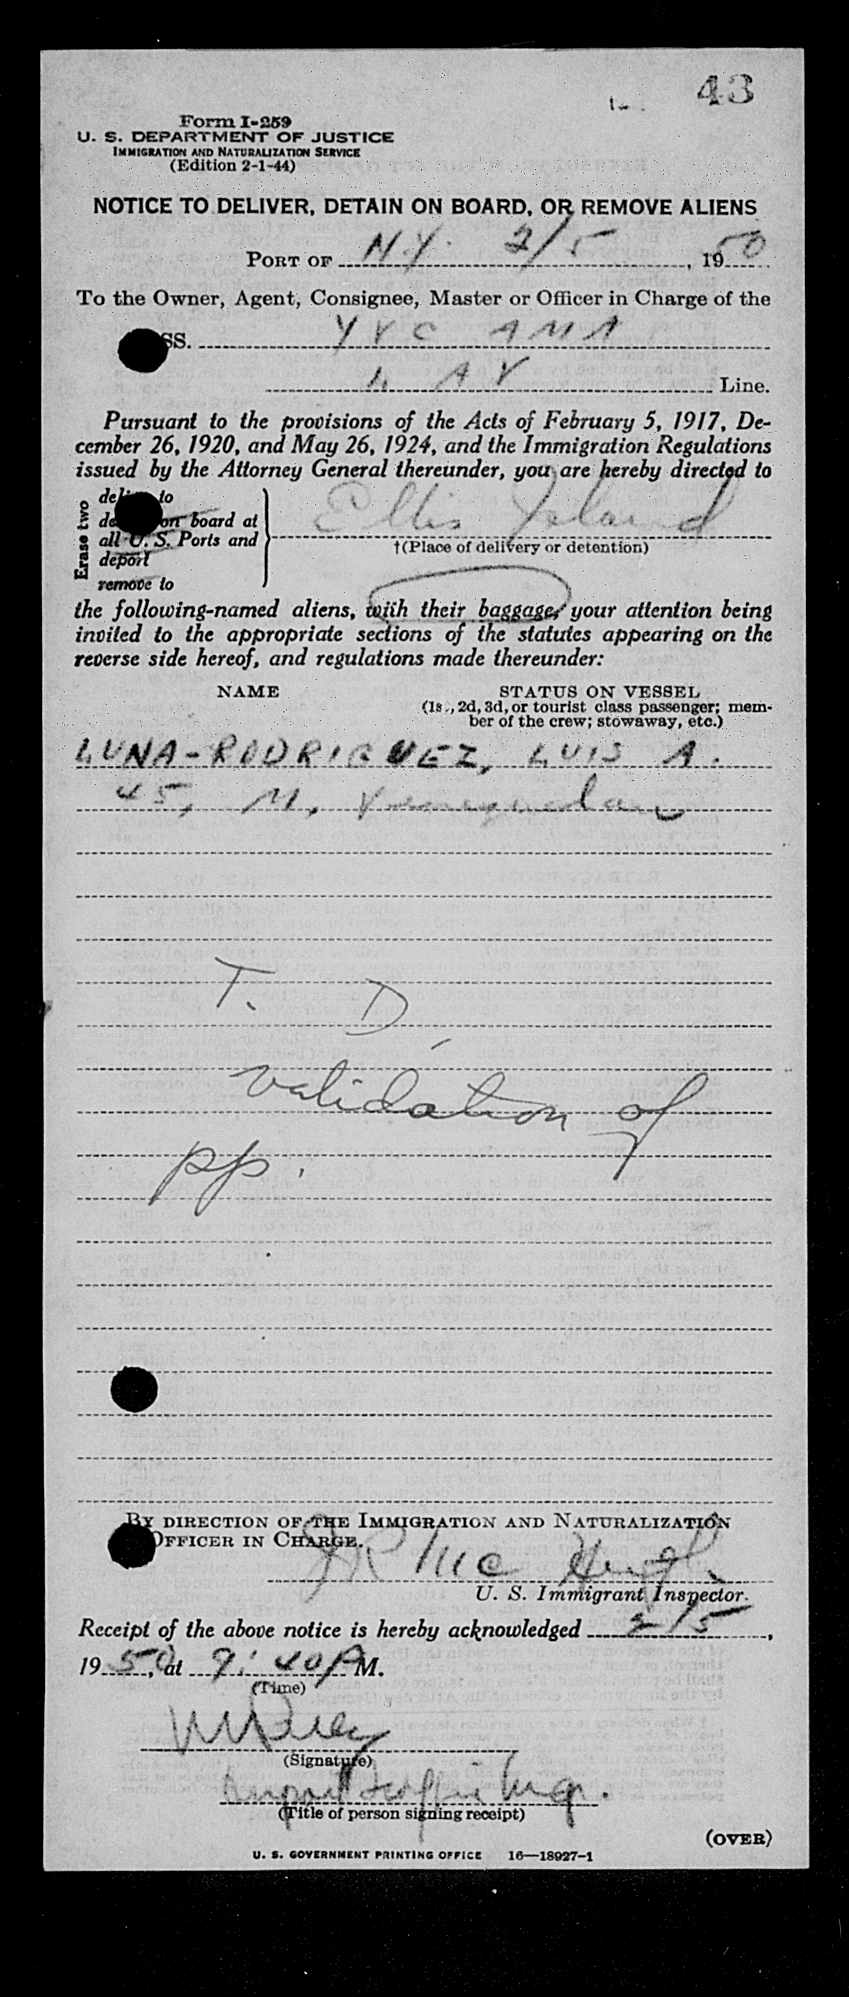 43
Form I-259
U. S. DEPARTMENT OF JUSTICE
IMMIGRATION AND NATURALIZATION SERVICE
(Edition 2-1-44)
NOTICE TO DELIVER, DETAIN ON BOARD, OR REMOVE ALIENS
PORT OF N.Y. 2/5, 1950
To the Owner, Agent, Consignee, Master or Officer in Charge of the
SS. YVC AMA
L AV Line.
Pursuant to the provisions of the Acts of February 5, 1917, De-
cember 26, 1920, and May 26, 1924, and the Immigration Regulations
issued by the Attorney General thereunder, you are hereby directed to
Erase two
to
on board at
all U. S. Ports and
deport
remove to
Ellis Island
†(Place of delivery or detention)
the following-named aliens, with their baggage, your attention being
invited to the appropriate sections of the statutes appearing on the
reverse side hereof, and regulations made thereunder:
NAME STATUS ON VESSEL
(1s., 2d, 3d, or tourist class passenger; mem-
ber of the crew; stowaway, etc.)
LUNA-RODRIGUEZ, LUIS A.
45, M, Venezuelan
T. D.
validation of
pp.
BY DIRECTION OF THE IMMIGRATION AND NATURALIZATION
OFFICER IN CHARGE.
U. S. Immigrant Inspector.
Receipt of the above notice is hereby acknowledged 2/5,
1950, at 9:40 PM.
(Time)
(Signature)
Airport Traffic Mgr.
(Title of person signing receipt)
(OVER)
U. S. GOVERNMENT PRINTING OFFICE 16—18927-1